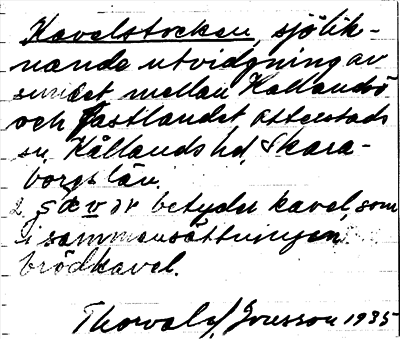 Kavelstocken, sjölik-
nande utvidgning av
sundet mellan Kållandsö
och fastlandet Otterstads
sn, Kållands hd, Skara-
borgs län.
betyder kavel, som
i sammansättningen
brödkavel.
Thorvald Jonsson 1935